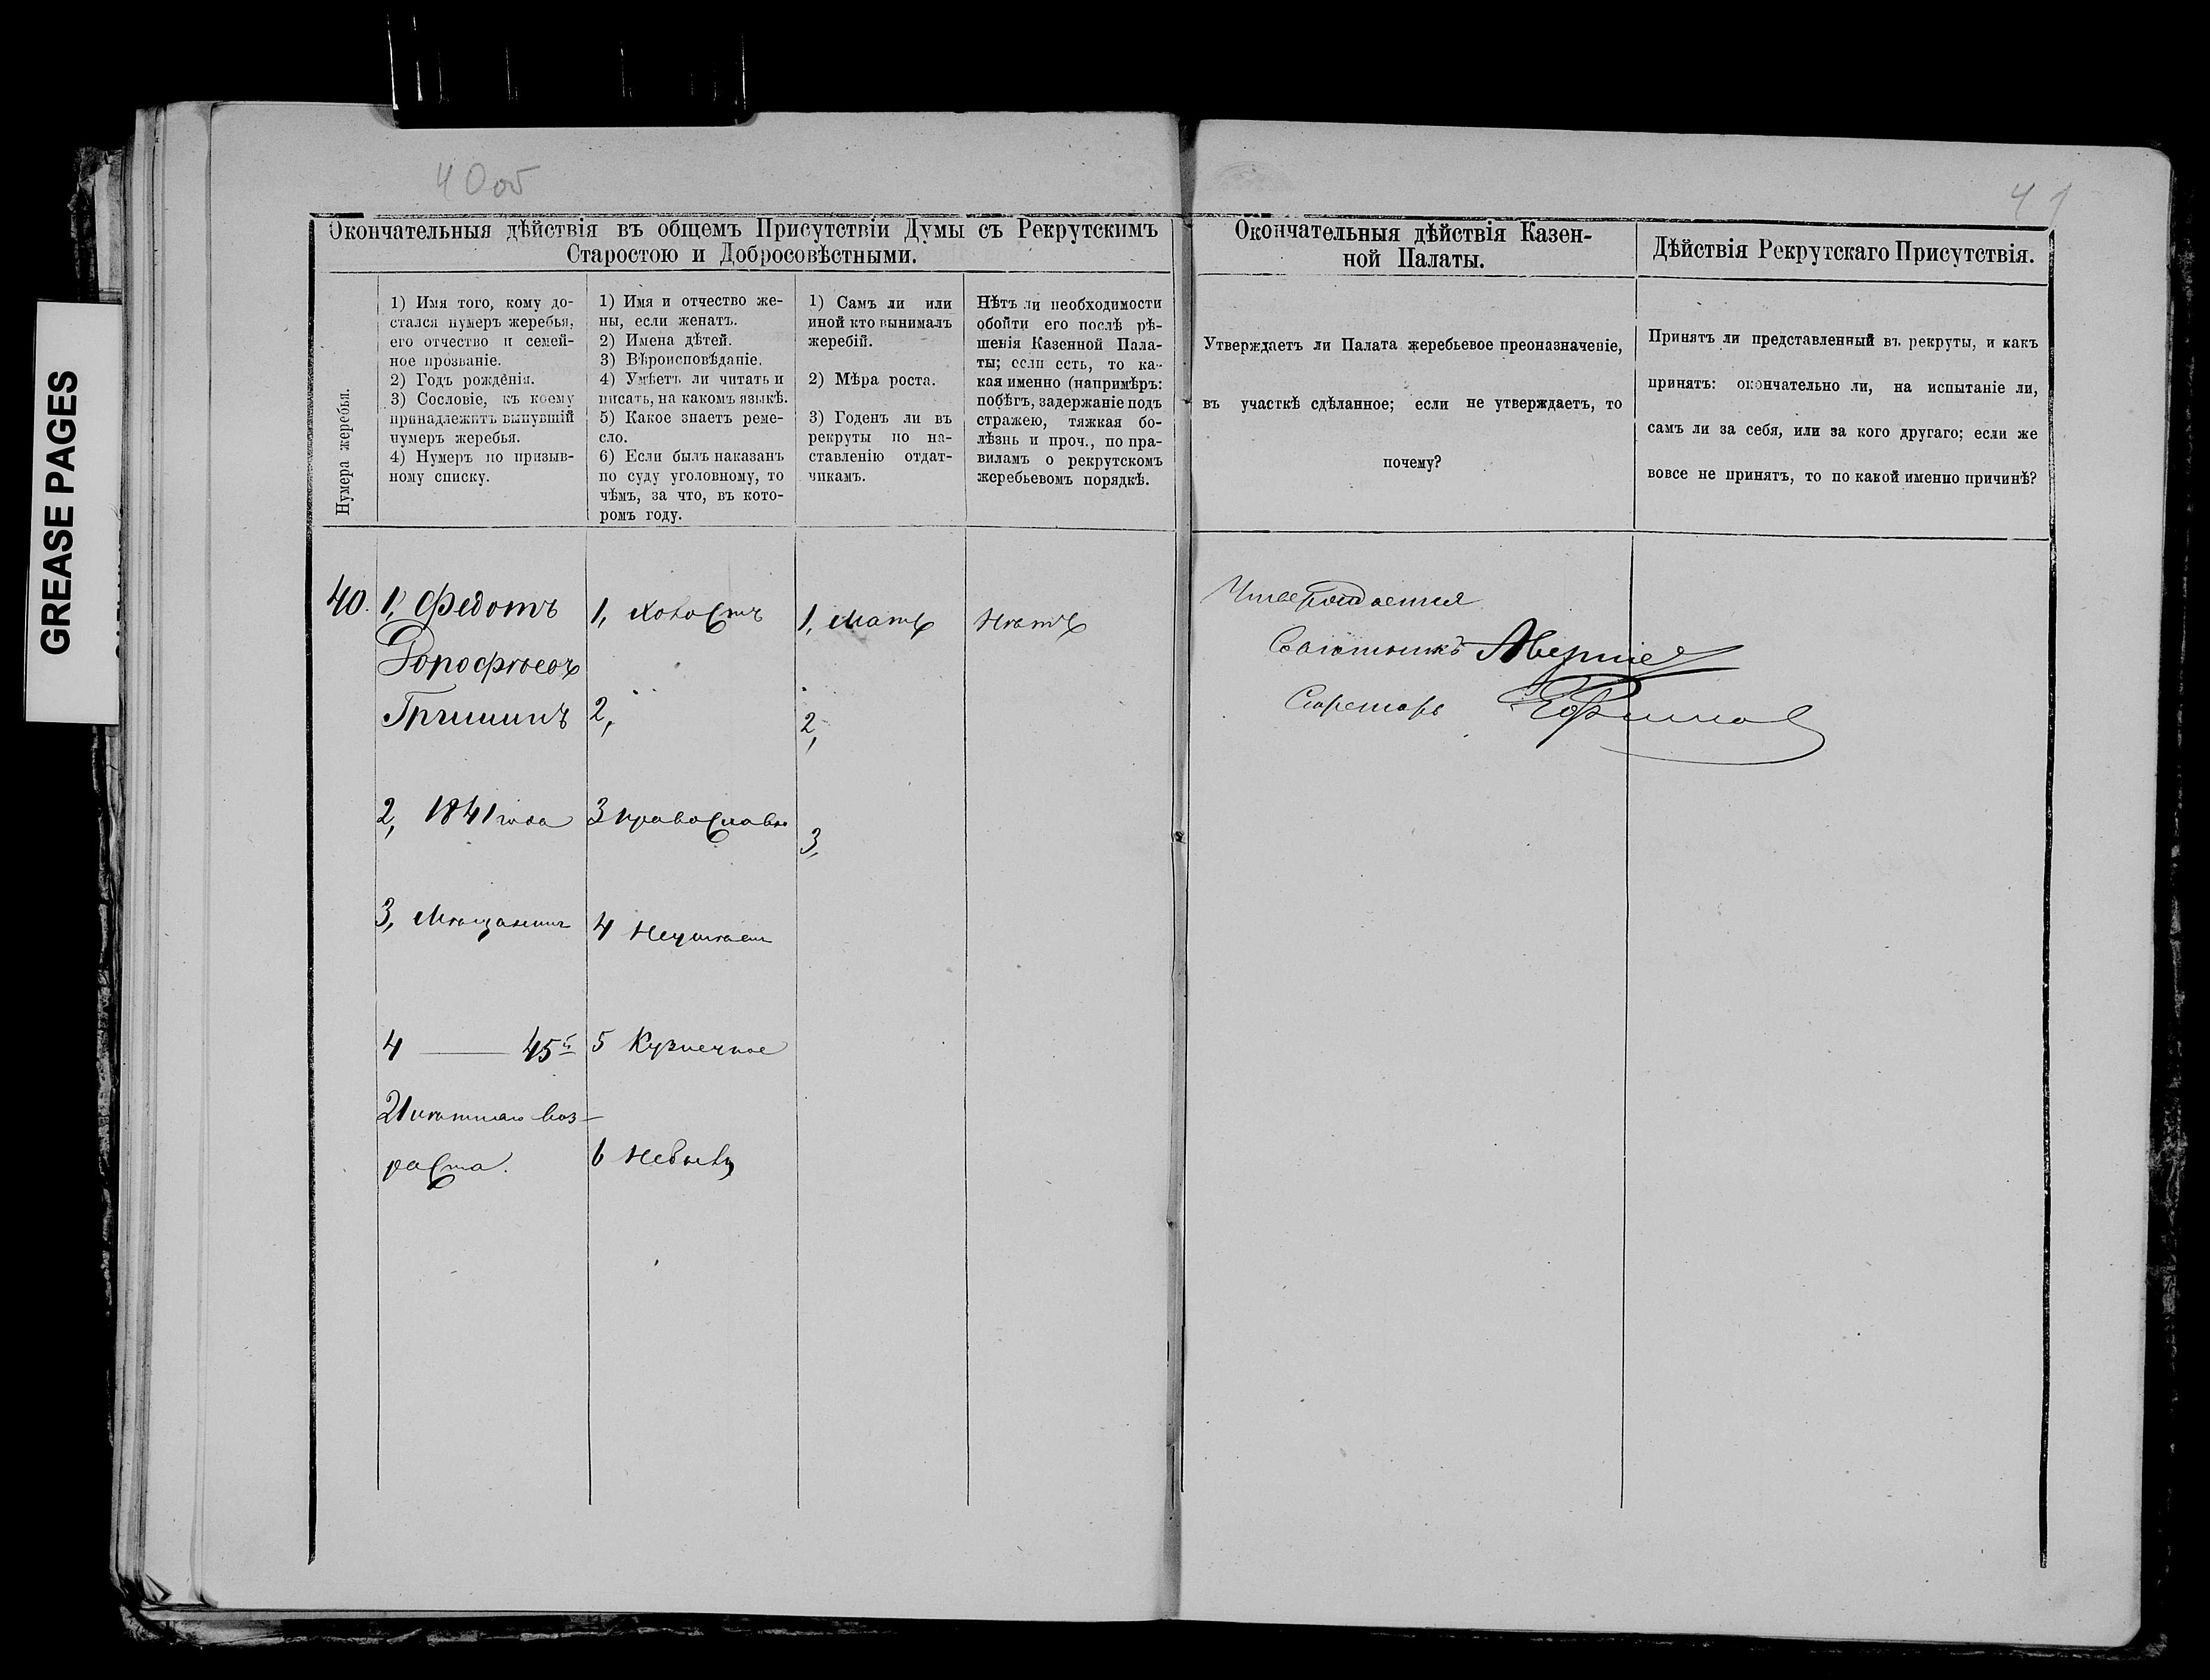 GREASE PAGES
40 об
41
Окончательныя дѣйствія въ общемъ Присутствіи Думы съ Рекрутскимъ
Старостою и Добросовѣстными.
Нумера жеребья.
1) Имя того, кому до-
стался нумеръ жеребья,
его отчество и семей-
ное прозваніе.
2) Годъ рожденія.
3) Сословіе, къ коему
принадлежитъ вынувшій
нумеръ жеребья.
4) Нумеръ по призыв-
ному списку.
1) Имя и отчество же-
ны, если женатъ.
2) Имена дѣтей.
3) Вѣроисповѣданіе.
4) Умѣетъ ли читать и
писать, на какомъ языкѣ.
5) Какое знаетъ реме-
сло.
6) Если былъ наказанъ
по суду уголовному, то
чѣмъ, за что, въ кото-
ромъ году.
1) Самъ ли или
иной кто вынималъ
жеребій.
2) Мѣра роста.
3) Годенъ ли въ
рекруты по на-
ставленію отдат-
чикамъ.
Нѣтъ ли необходимости
обойти его послѣ рѣ-
шенія Казенной Пала-
ты; если есть, то ка-
кая именно (напримѣръ:
побѣгъ, задержаніе подъ
стражею, тяжкая бо-
лѣзнь и проч., по пра-
виламъ о рекрутскомъ
жеребьевомъ порядкѣ.
Окончательныя дѣйствія Казен-
ной Палаты.
Утверждаетъ ли Палата жеребьевое преоназначеніе,
въ участкѣ сдѣланное; если не утверждаетъ, то
почему?
Дѣйствія Рекрутскаго Присутствія.
Принятъ ли представленный въ рекруты, и какъ
принятъ: окончательно ли, на испытаніе ли,
самъ ли за себя, или за кого другаго; если же
вовсе не принятъ, то по какой именно причинѣ?
40.
1, Федотъ
Дорофѣевъ
Гришинъ
2, 1841 года
3, Мѣщанинъ
4 — 45й
21 лѣтняго воз-
раста.
1, Холостъ
2,
3 православн
4 Неумѣетъ
5 Кузнечное
6 Небылъ
1, Мать
2,
3,
Нѣтъ
Утверждается
Совѣтникъ
Секретарь